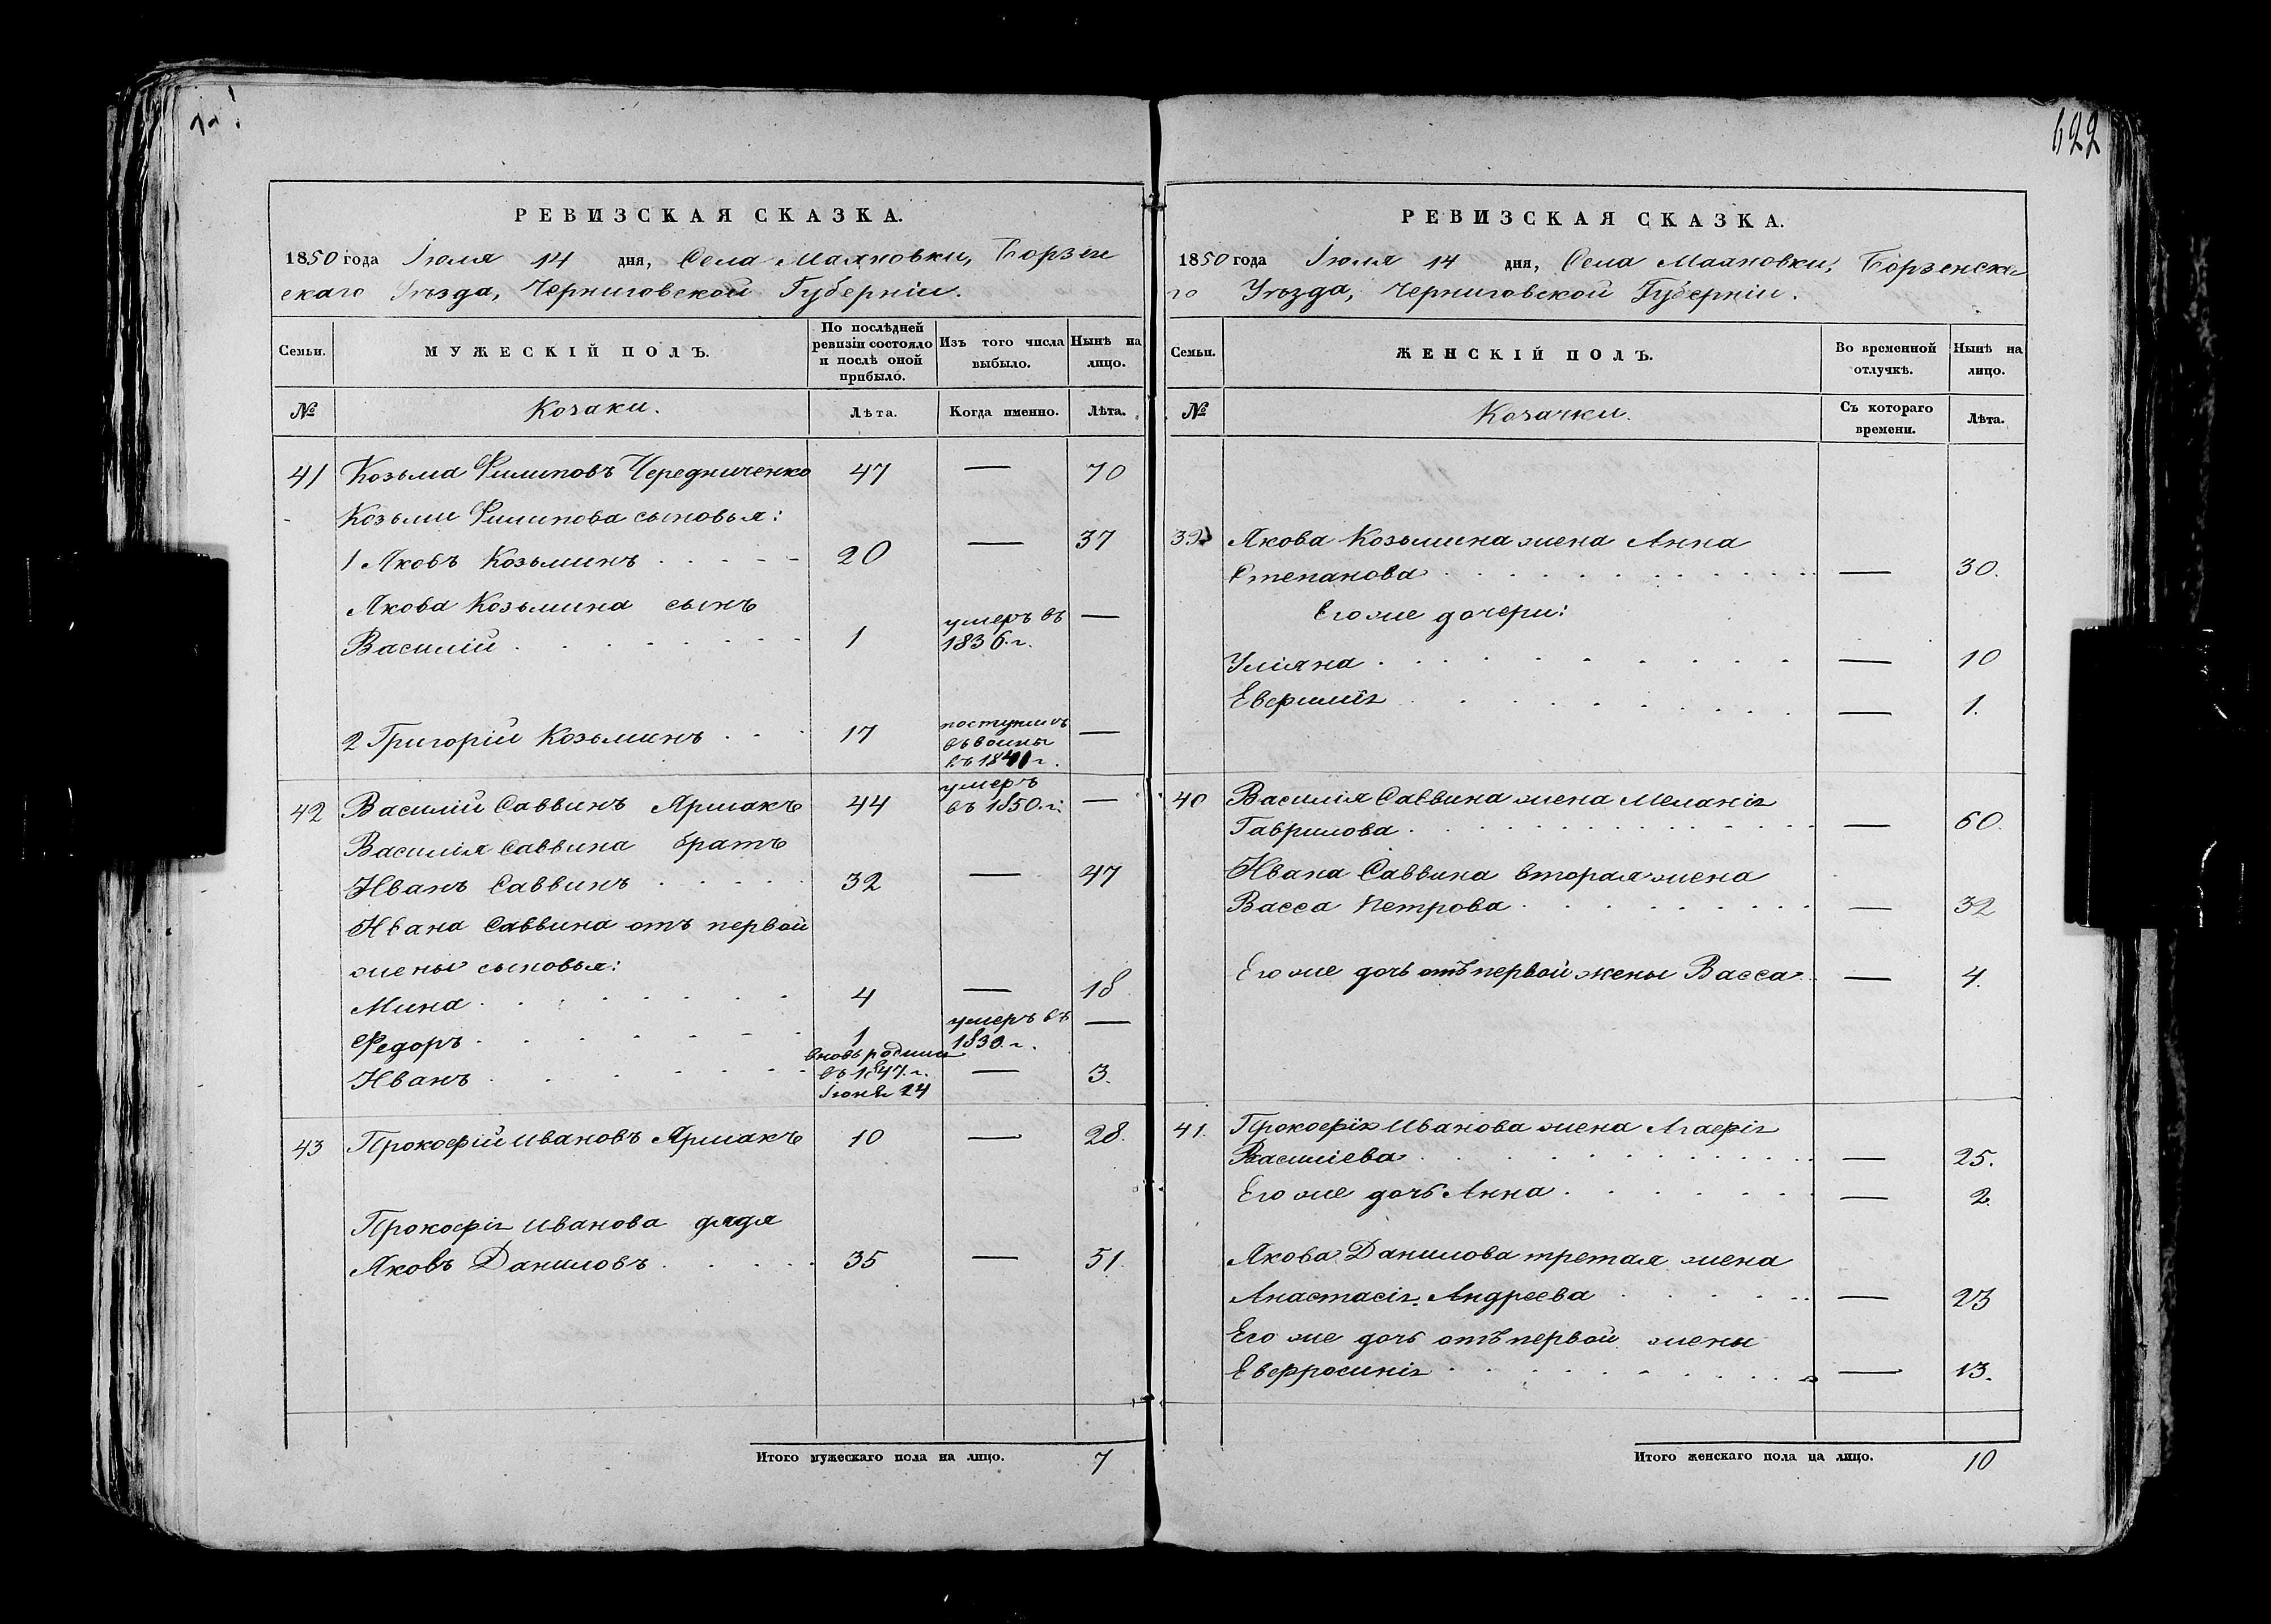 622
РЕВИЗСКАЯ СКАЗКА.
1850 года Іюля 14 дня, Села Малановки, Борзен
скаго Уѣзда, Черниговской Губерніи.
Семьи.
МУЖЕСКІЙ ПОЛЪ.
По послѣдней ревизіи состояло и послѣ оной прибыло.
Изъ того числа выбыло.
Нынѣ на лицо.
№ Козаки. Лѣта. Когда именно. Лѣта.
41 Козьма Филиповъ Чередниченко 47 — 70
Козьмы Филипова сыновья:
1 Яковъ Козьминъ 20 — 37
Якова Козьмина сынъ
Василій 1 умеръ въ 1836.г. —
2 Григорій Козьминъ 17 поступилъ въ воины въ 1841 г. —
42 Василій Саввинъ Ярмакъ 44 умеръ въ 1850.г. —
Василія Саввина братъ
Иванъ Саввинъ 32 — 47
Ивана Саввина отъ первой
жены сыновья:
Мина 4 — 18
Федоръ 1 умеръ въ 1839.г. —
Иванъ вновь родился въ 1847.г. Іюня 24 — 3.
43 Прокофій Ивановъ Ярмакъ 10 — 28.
Прокофія Иванова дядя
Яковъ Даниловъ 35 — 51.
Итого мужескаго пола на лицо. 7
РЕВИЗСКАЯ СКАЗКА.
1850 года Іюля 14 дня, Села Малановки, Борзенска
го Уѣзда, Черниговской Губерніи.
Семьи.
ЖЕНСКІЙ ПОЛЪ.
Во временной отлучкѣ.
Нынѣ на лицо.
№ Козачки. Съ котораго времени. Лѣта.
39 Якова Козьмина жена Анна
Степанова — 30.
Его же дочери:
Уліяна — 10
Евфимія — 1.
40 Василія Саввина жена Меланія
Гаврилова — 60.
Ивана Саввина вторая жена
Васса Петрова — 32
Его же дочь отъ первой жены Васса — 4.
41. Прокофія Иванова жена Агафія
Василіева — 25.
Его же дочь Анна — 2.
Якова Данилова третая жена
Анастасія Андреева — 23
Его же дочь отъ первой жены
Евфросинія — 13.
Итого женскаго пола на лицо. 10